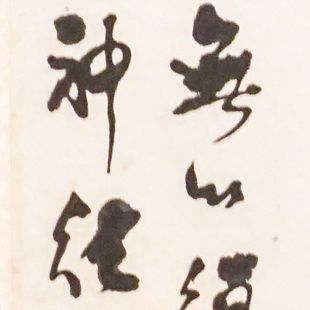 無以
神經